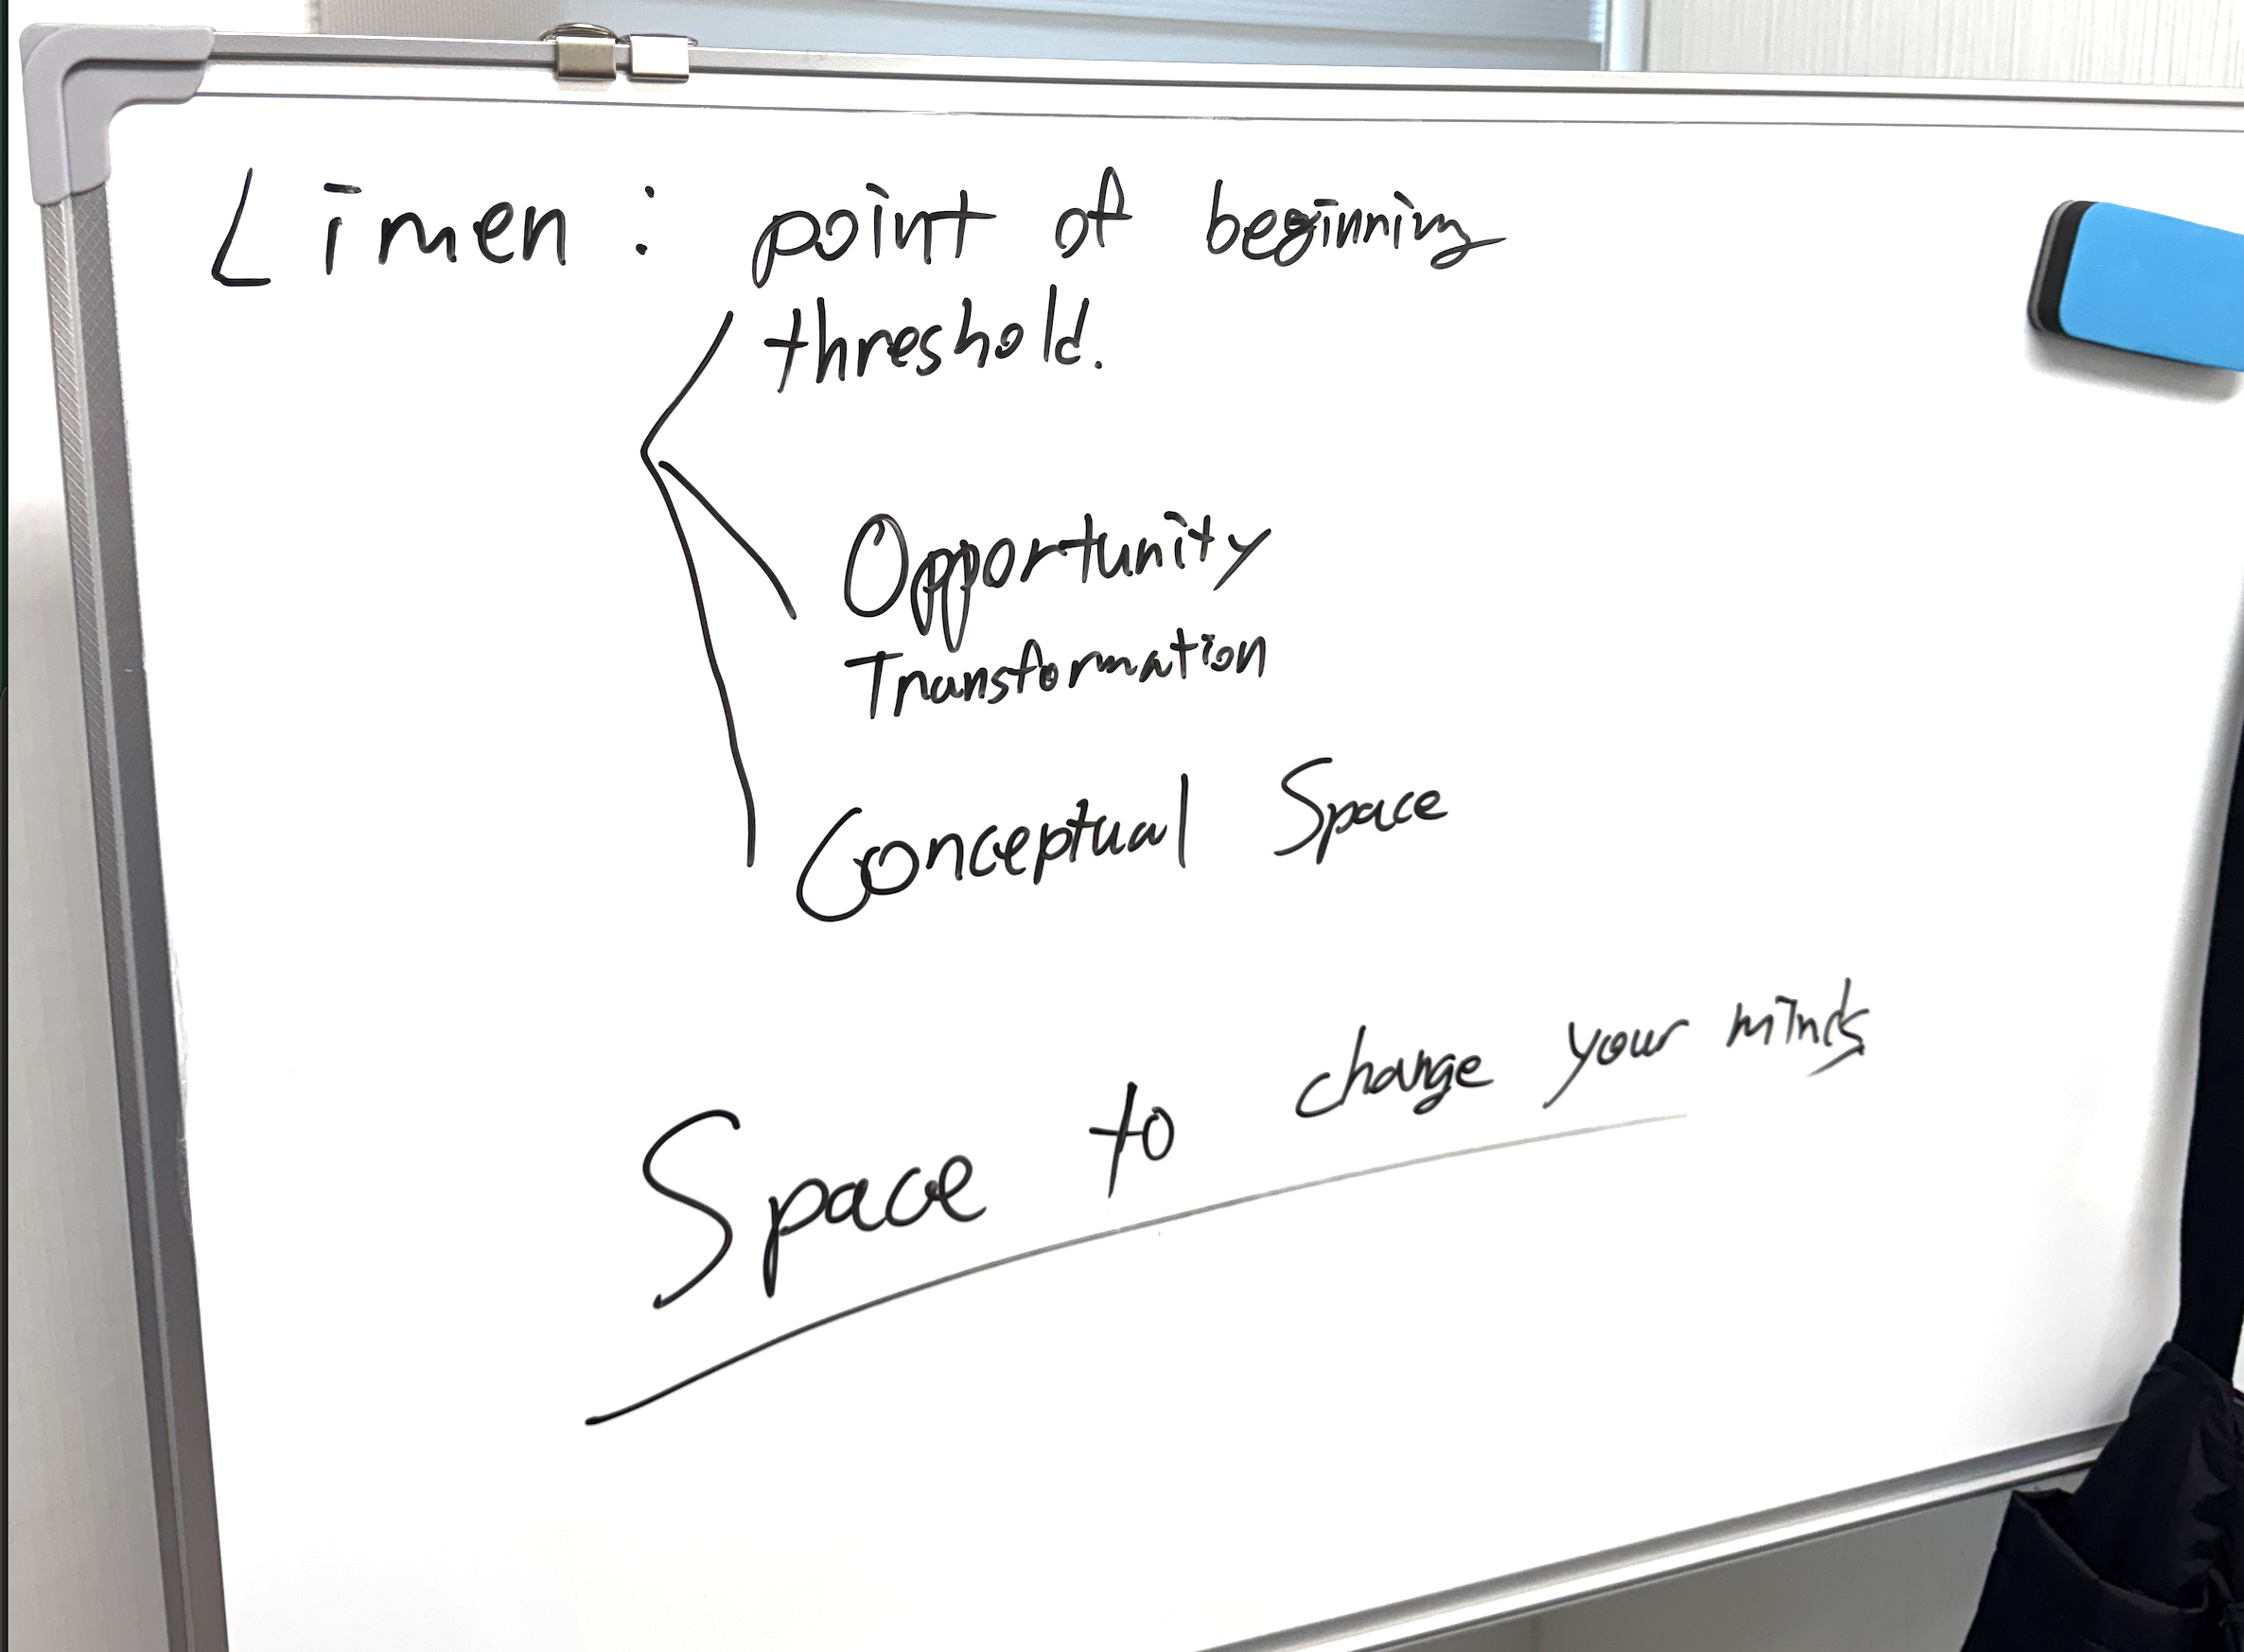 Limen : point of beginning
threshold.
Opportunity
Transformation
Conceptual Space
Space to change your minds